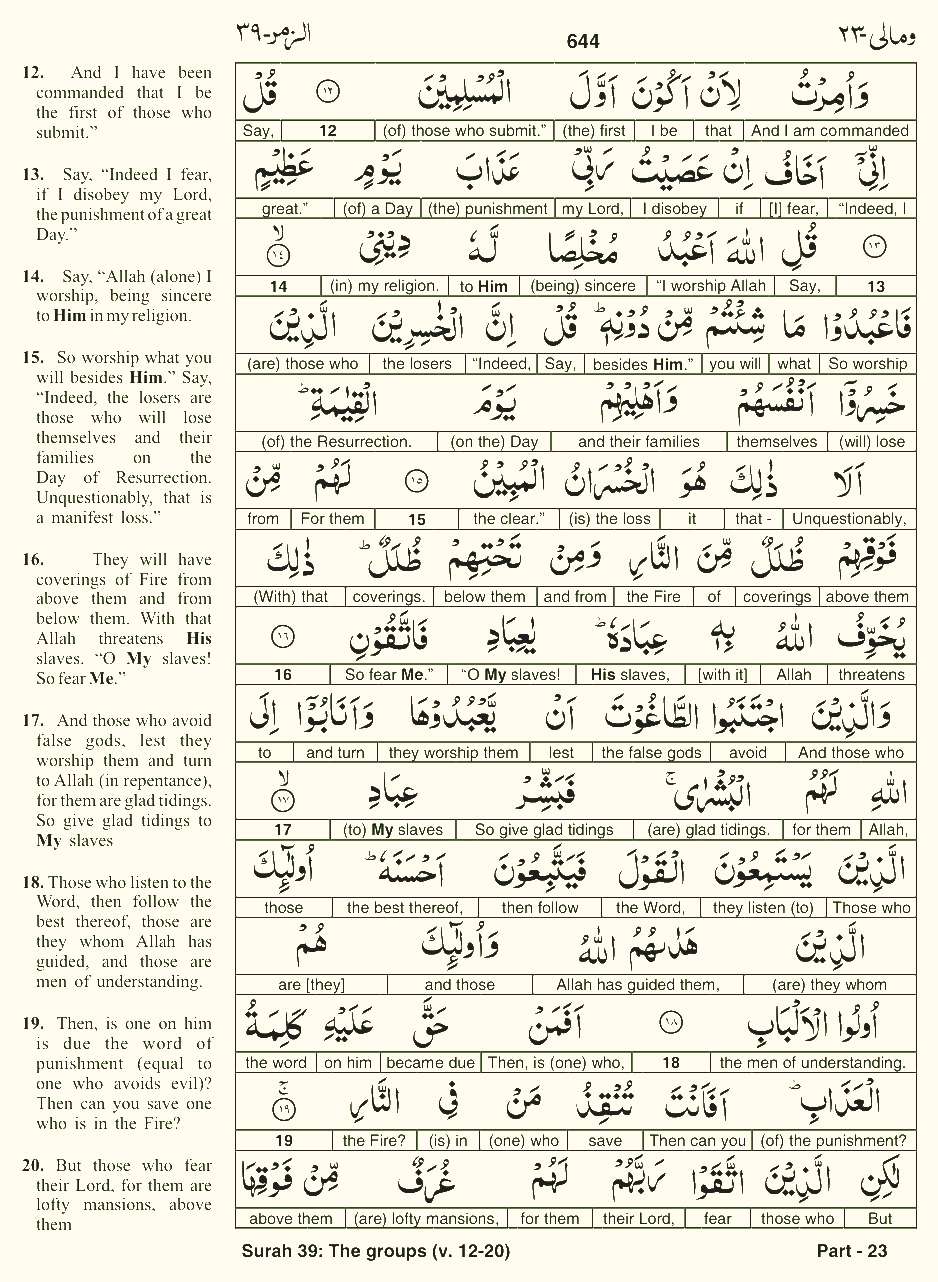 الزمر-٣٩
644
ومالى-٢٣
12. And I have been
commanded that I be
the first of those who
submit.”
13. Say, “Indeed I fear,
if I disobey my Lord,
the punishment of a great
Day.”
14. Say, “Allah (alone) I
worship, being sincere
to Him in my religion.
15. So worship what you
will besides Him.” Say,
“Indeed, the losers are
those who will lose
themselves and their
families on the
Day of Resurrection.
Unquestionably, that is
a manifest loss.”
16. They will have
coverings of Fire from
above them and from
below them. With that
Allah threatens His
slaves. “O My slaves!
So fear Me.”
17. And those who avoid
false gods, lest they
worship them and turn
to Allah (in repentance),
for them are glad tidings.
So give glad tidings to
My slaves
18. Those who listen to the
Word, then follow the
best thereof, those are
they whom Allah has
guided, and those are
men of understanding.
19. Then, is one on him
is due the word of
punishment (equal to
one who avoids evil)?
Then can you save one
who is in the Fire?
20. But those who fear
their Lord, for them are
lofty mansions, above
them
وَاُمِرْتُ لِاَنْ اَكُوْنَ اَوَّلَ الْمُسْلِمِيْنَ ١٢ قُلْ
And I am commanded that I be (the) first (of) those who submit.” 12 Say,
اِنِّيْٓ اَخَافُ اِنْ عَصَيْتُ رَبِّيْ عَذَابَ يَوْمٍ عَظِيْمٍ
“Indeed, I [I] fear, if I disobey my Lord, (the) punishment (of) a Day great.”
١٣ قُلِ اللّٰهَ اَعْبُدُ مُخْلِصًا لَّهٗ دِيْنِيْ ۙ ١٤
13 Say, “I worship Allah (being) sincere to Him (in) my religion. 14
فَاعْبُدُوْا مَا شِئْتُمْ مِّنْ دُوْنِهٖ ؕ قُلْ اِنَّ الْخٰسِرِيْنَ الَّذِيْنَ
So worship what you will besides Him.” Say, “Indeed, the losers (are) those who
خَسِرُوْٓا اَنْفُسَهُمْ وَاَهْلِيْهِمْ يَوْمَ الْقِيٰمَةِ ؕ
(will) lose themselves and their families (on the) Day (of) the Resurrection.
اَلَا ذٰلِكَ هُوَ الْخُسْرَانُ الْمُبِيْنُ ١٥ لَهُمْ مِّنْ
Unquestionably, that - it (is) the loss the clear.” 15 For them from
فَوْقِهِمْ ظُلَلٌ مِّنَ النَّارِ وَمِنْ تَحْتِهِمْ ظُلَلٌ ؕ ذٰلِكَ
above them coverings of the Fire and from below them coverings. (With) that
يُخَوِّفُ اللّٰهُ بِهٖ عِبَادَهٗ ؕ يٰعِبَادِ فَاتَّقُوْنِ ١٦
threatens Allah [with it] His slaves, “O My slaves! So fear Me.” 16
وَالَّذِيْنَ اجْتَنَبُوا الطَّاغُوْتَ اَنْ يَّعْبُدُوْهَا وَاَنَابُوْٓا اِلَى
And those who avoid the false gods lest they worship them and turn to
اللّٰهِ لَهُمُ الْبُشْرٰى ۚ فَبَشِّرْ عِبَادِ ۙ ١٧
Allah, for them (are) glad tidings. So give glad tidings (to) My slaves 17
الَّذِيْنَ يَسْتَمِعُوْنَ الْقَوْلَ فَيَتَّبِعُوْنَ اَحْسَنَهٗ ؕ اُولٰٓئِكَ
Those who they listen (to) the Word, then follow the best thereof, those
الَّذِيْنَ هَدٰىهُمُ اللّٰهُ وَاُولٰٓئِكَ هُمْ
(are) they whom Allah has guided them, and those are [they]
اُولُوا الْاَلْبَابِ ١٨ اَفَمَنْ حَقَّ عَلَيْهِ كَلِمَةُ
the men of understanding. 18 Then, is (one) who, became due on him the word
الْعَذَابِ ؕ اَفَاَنْتَ تُنْقِذُ مَنْ فِي النَّارِ ۚ ١٩
(of) the punishment? Then can you save (one) who (is) in the Fire? 19
لٰكِنِ الَّذِيْنَ اتَّقَوْا رَبَّهُمْ لَهُمْ غُرَفٌ مِّنْ فَوْقِهَا
But those who fear their Lord, for them (are) lofty mansions, above them
Surah 39: The groups (v. 12-20)
Part - 23